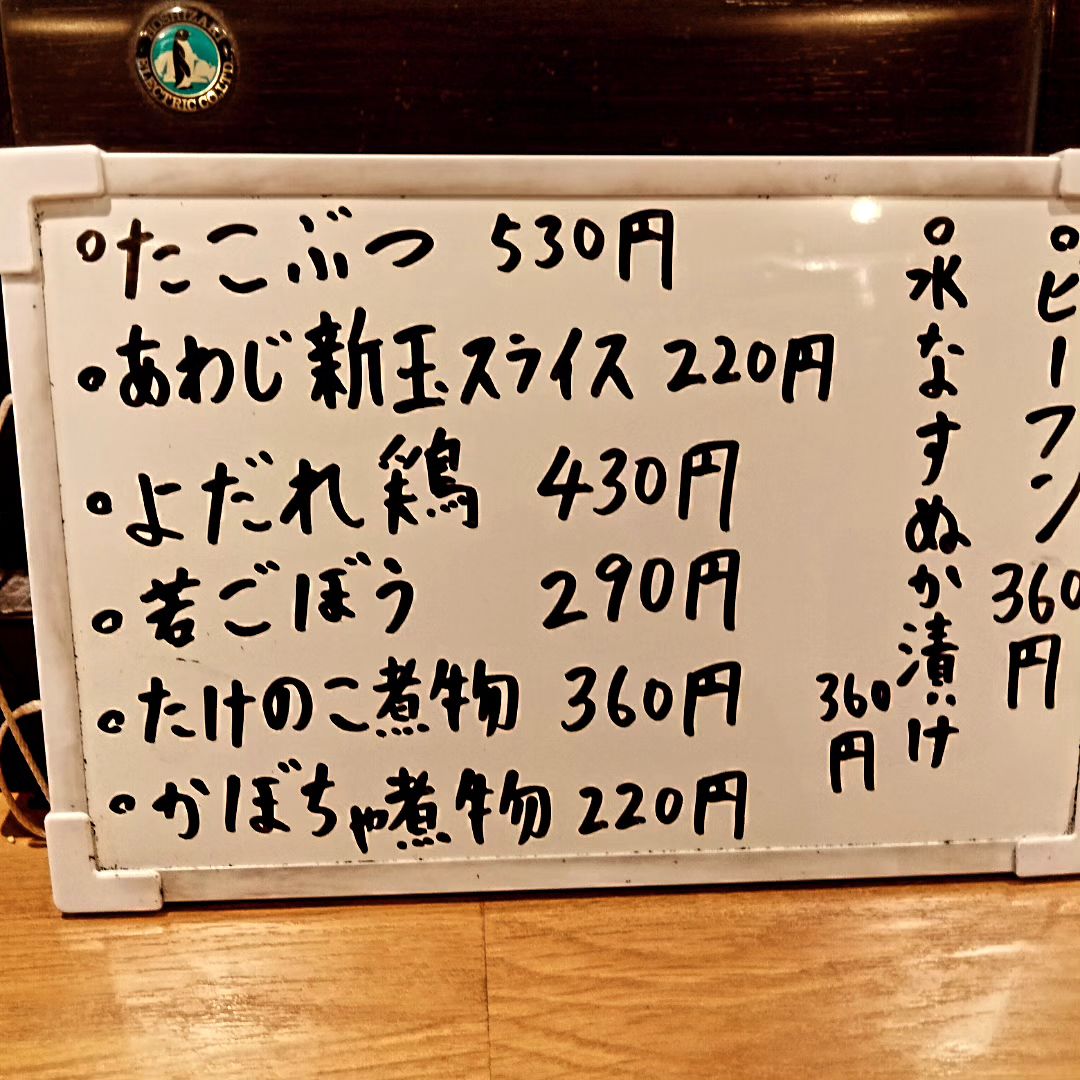 HOSHIZAKI ELECTRIC CO.,LTD.
たこぶつ 530円
あわじ新玉スライス 220円
よだれ鶏 430円
若ごぼう 290円
たけのこ煮物 360円
かぼちゃ煮物 220円
ビーフン 360円
水なすぬか漬け 360円